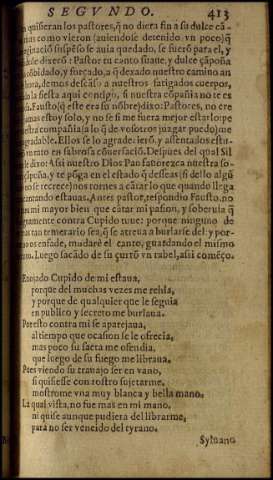 SEGVNDO. 413
quisieran los pastores, q̃ no diera fin a su dulce cã-
mas como vieron (auiendose detenido vn poco) q̃
suspẽso se auia quedado, se fuerõ para el, y
dixerõ: Pastor tu canto suaue, y dulce çãpoña
cõbidado, y forçado, a q̃ dexado nuestro camino an
hora, demos descãso a nuestros fatigados cuerpos,
la siesta aqui contigo, si nuestra cõpañia no te es
Fausto (q̃ este era su nõbre) dixo: Pastores, no cre
estoy solo, y no se si me fuera mejor estarlo: pe
uestra compañia (a lo q̃ de vosotros juzgar puedo) me
agradable. Ellos se lo agradecierõ, y assentados estu-
en sabrosa cõuersaciõ. Despues del qual Sil
dixo: Assi nuestro Dios Pan fauorezca nuestra
y te põga en el estado q̃ desseas (si dello algũ
se recrece) nos tornes a cãtar lo que quando llega
cantando estauas. Antes pastor, respondio Fausto, no
mi mayor bien que cãtar mi passion, y soberuia q̃
contra Cupido tuue: porque ninguno de
tan temerario sea, q̃ se atreua a burlarse del: y por-
enfade, mudarè el canto, guardando el mismo
Luego sacãdo de su currõ vn rabel, assi comẽço.
Enojado Cupido de mi estaua,
porque del muchas vezes me rehia,
y porque de qualquier que le seguia
en publico y secreto me burlaua.
Por esto contra mi se aparejaua,
al tiempo que ocasion se le ofrecia,
mas poco su saeta me ofendia,
que luego de su fuego me libraua.
Pues viendo su trabajo ser en vano,
si quisiesse con rostro sujetarme,
mostrome vna muy blanca y bella mano.
La qual vista, no fue mas en mi mano,
ni quise aunque pudiera del librarme,
para no ser vencido del tyrano.
Syluano